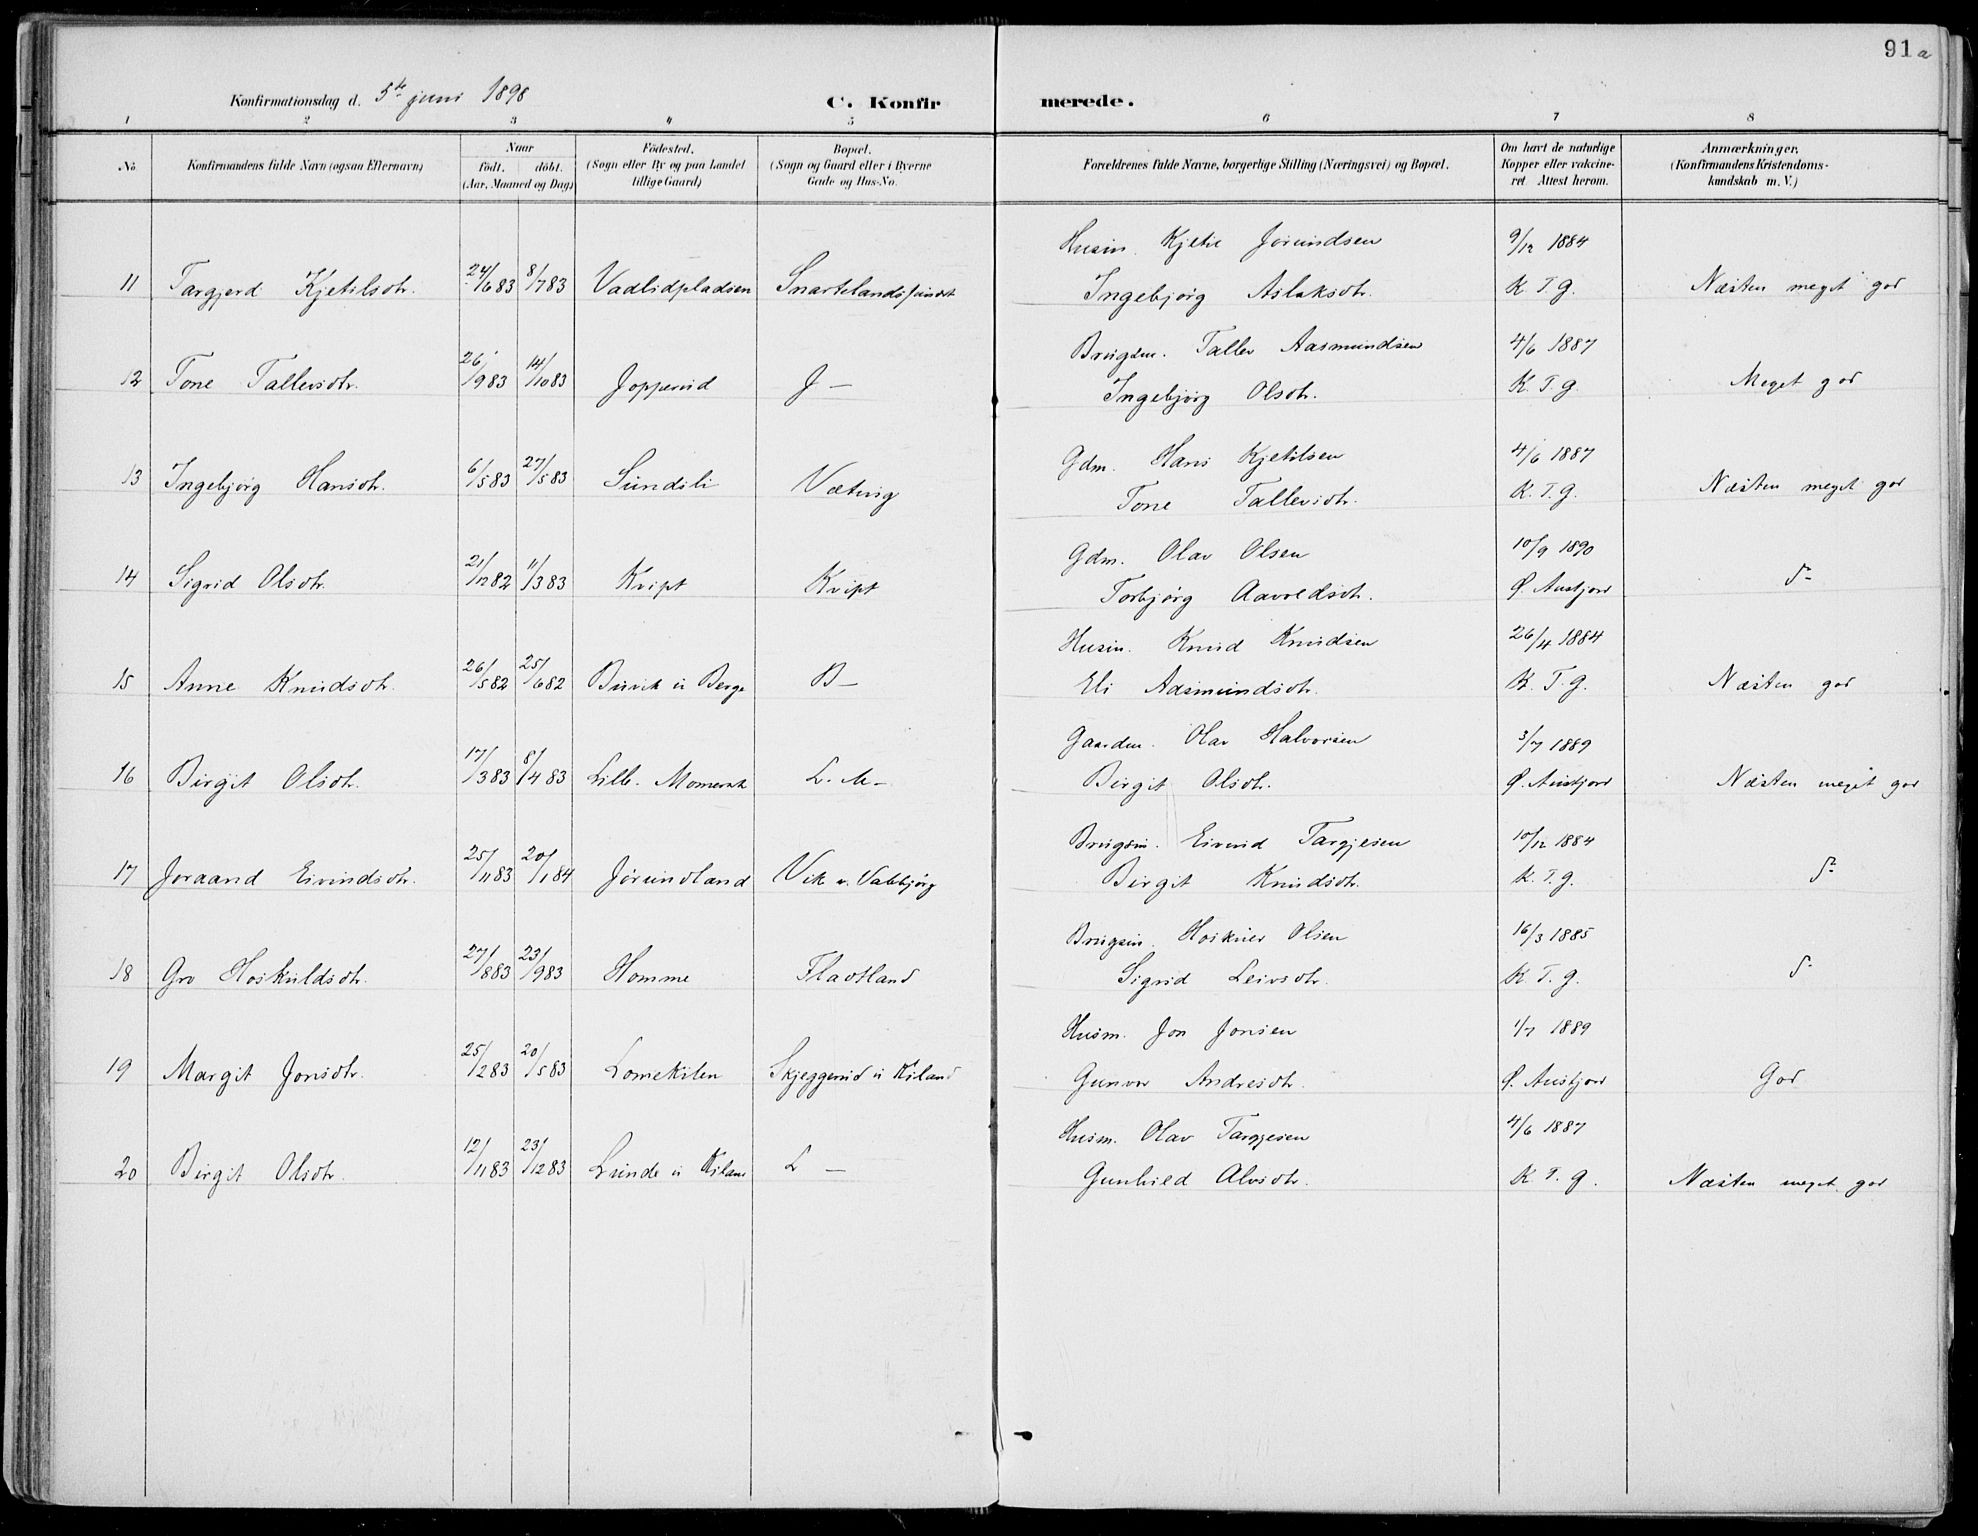 91a
Konfirmationsdag d. 5te juni 1898
C. Konfirmerede.
1 2 3 4 5 6 7 8
No Konfirmandens fulde Navn (ogsaa Efternavn) Naar født. døbt. (Aar, Maaned og Dag) Fødested. (Sogn eller By og paa Landet tillige Gaard) Bopæl. (Sogn og Gaard eller i Byerne Gade og Hus-No. Forældrenes fulde Navne, borgerlige Stilling (Næringsvei) og Bopæl. Om havt de naturlige Kopper eller vakcineret. Attest herom. Anmærkninger. (Konfirmandens Kristendomskundskab m. V.)
Husm. Kjetil Jørundsen 9/12 1884
11 Targjerd Kjetilsdtr. 24/6 83 8/7 83 Vadlidpladsen Snartelandsfundet Ingebjørg Aslaksdtr. K. T. G. Næsten meget god
Brugsm. Tallev Aasmundsen 4/6 1887
12 Tone Tallevsdtr. 26/9 83 14/10 83 J — Ingebjørg Olsdtr. K. T. G. Meget god
Gdm. Hans Kjetilsen 4/6 1887
13 Ingebjørg Hansdtr. 6/5 83 27/5 83 Sundsli Væting Tone Tallevsdtr. K. T. G. Næsten meget god
Gdm. Olav Olsen 10/9 1890
14 Sigrid Olsdtr. 21/12 82 11/3 83 Kvipt Kvipt Torbjørg Aavoldsdtr. Ø. Austjord
Husm. Knud Knudsen 26/4 1884
15 Anne Knudsdtr. 26/5 82 25/6 82 Buvik u Berge B — Eli Aasmundsdtr. K. T. G. Næsten god
Gaardm. Olav Halvorsen 3/7 1889
16 Birgit Olsdtr. 17/3 83 8/4 83 Lille. Momerak L. M — Birgit Olsdtr. Ø. Austjord Næsten meget god
Brugsm. Eivind Targjesen 10/12 1884
17 Joraand Eivindsdtr. 25/11 83 20/1 84 Jørundland Vik u. Valebjørg Birgit Knudsdtr. K. T. G.
Brugsm. Olsen 16/3 1885
18 Gro Hoskuldsdtr. 27/8 83 23/9 83 Homme Flaatland Sigrid Leivsdtr. K. T. G.
Husm. Jon Jonsen 1/7 1889
19 Margit Jonsdtr. 25/2 83 20/5 83 Lomekilen Skjeggerud u Kiland Gunvor Andresdtr. Ø. Austjord God
Husm. Olav Targjesen 4/6 1887
20 Birgit Olsdtr. 12/11 83 23/12 83 Lunde u Kiland L — Gunhild Alvsdtr. K. T. G. Næsten meget god